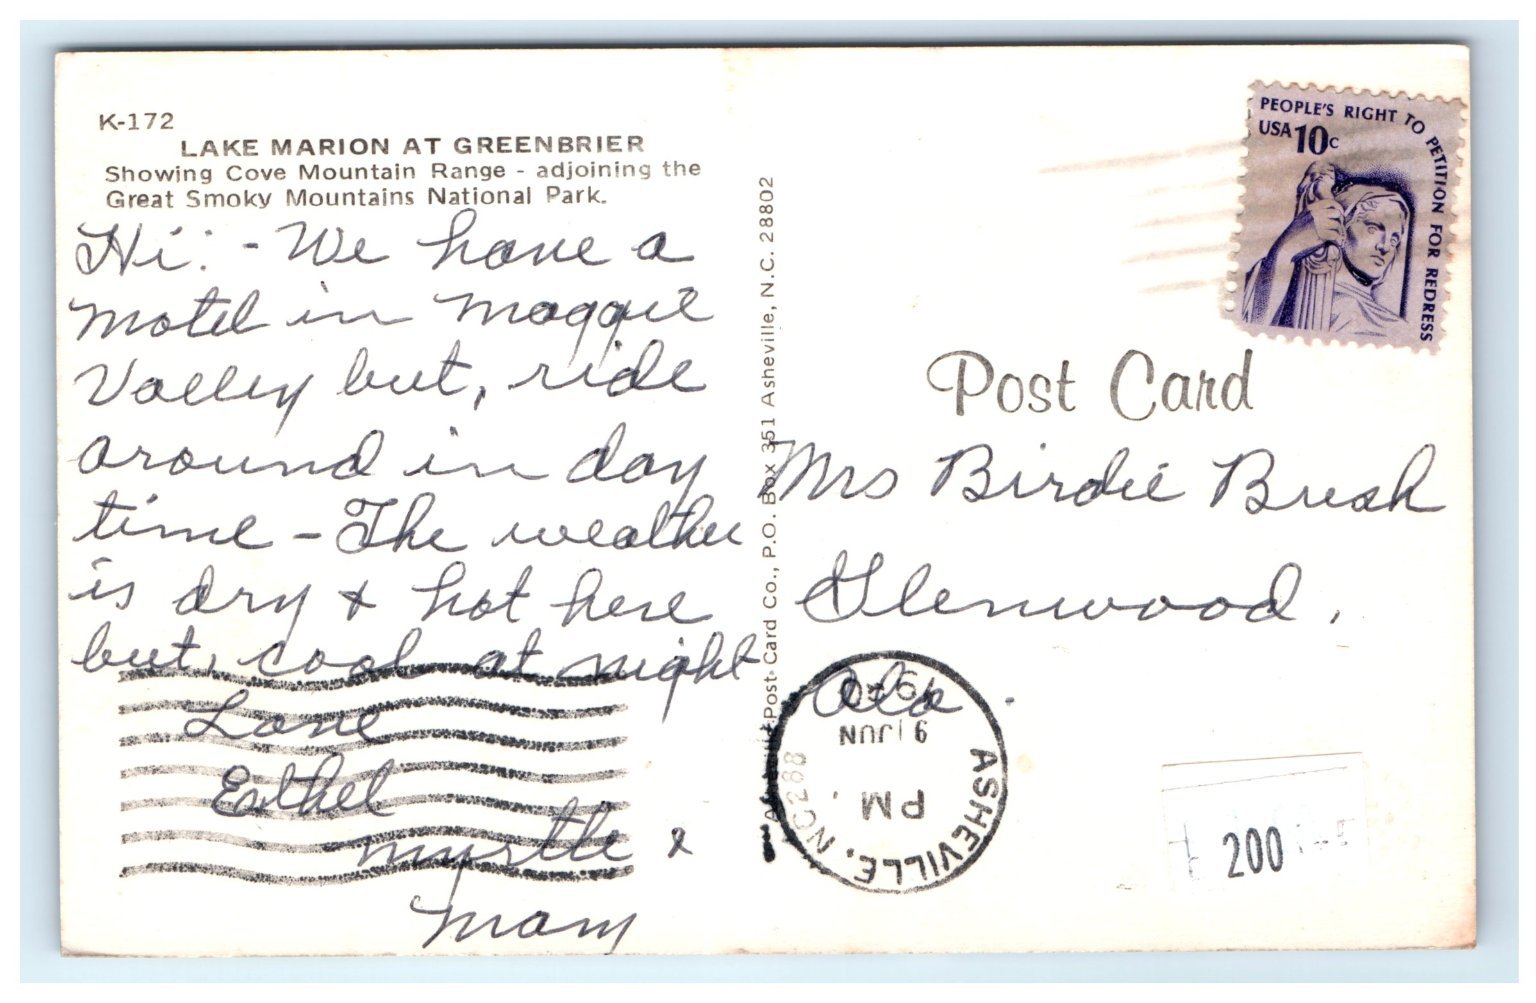 K-172
LAKE MARION AT GREENBRIER
Showing Cove Mountain Range - adjoining the
Great Smoky Mountains National Park.
Hi: - We have a
motel in Maggie
Valley but, ride
around in day
time - The weather
is dry & hot here
but, cool at night
Love
Ethel
Myrtle &
Mary
Post Card Co., P.O. Box 351 Asheville, N.C. 28802
PEOPLE'S RIGHT TO PETITION FOR REDRESS
USA 10c
Post Card
Mrs Birdie Bush
Glenwood,
Ala.
ASHEVILLE, NC 288
PM
9 JUN
200